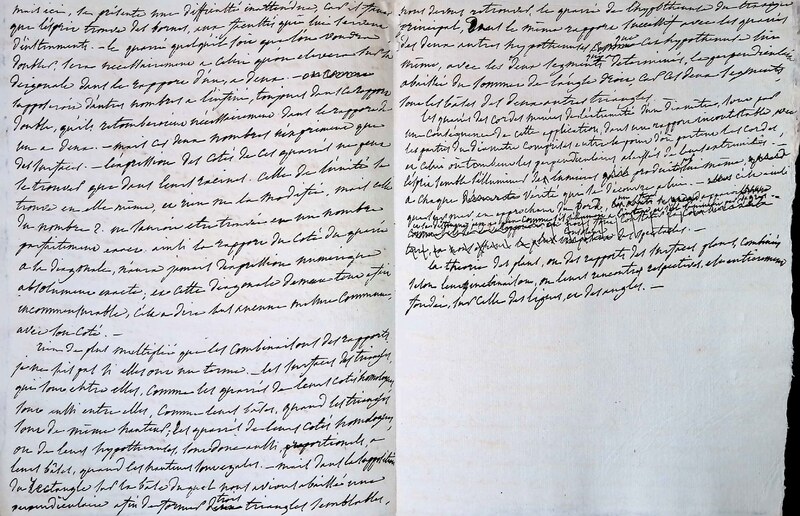 mais ici, se présente une difficulté inattendue, car il faut
que l'esprit trouve des bornes, aux facultés qui lui servent
d'instruments. – le quarré quelqu'il soit que l'on voudra
doubler, sera nécessairement a celui qu'on elevera sur la
diagonale dans le rapport d'un, a deux. –
supposoit d'autres nombres a l'infini, toujours dans le rapport
double, qu'ils retomberoient nécessairement dans le rapport de
un a deux. – mais ces deux nombres n'expriment que
des surfaces. – l'expression des cotés de ces quarrés ne peut
se trouver que dans leurs racines. Celle de l'unité se
trouve en elle même, et rien ne la modifie, mais celle
du nombre 2. ne sauroit etre trouvée en un nombre
parfaitement exact. ainsi le rapport du coté du quarré
a la diagonale, n'aura jamais d'expression numerique
absolument exacte; et cette diagonale demeure tout afin
incommensurable, c'est a dire sans aucune mesure commune,
avec son coté. –
rien de plus multiplié que les combinaisons des rapports,
je ne sais pas si elles ont un terme. – les surfaces des triangles,
qui sont entre elles, comme les quarrés de leurs cotés homologues,
sont aussi entre elles, comme leurs bases, quand les triangles
sont de même hauteur; les quarrés de leurs cotés homologues,
ou de leurs hypothenuses, sont donc aussi, proportionels, a
leurs bases, quand les hauteurs sont egales. – mais dans la supposition
du rectangle sur la base duquel nous avions abaissé une
perpendiculaire afin de former trois triangles semblables,
nous devons retrouver, le quarré de l'hypothenuse du triangle
principal, dans le même rapport successif avec les quarrés
des deux autres hypothenuses, que cet hypothenuse lui
même, avec les deux segments determinés, la perpendiculaire
abaissée du sommet de l'angle droit car ces deux segments
sont les bases des deux autres triangles. –
les quarrés des cordes menées de l'extremité d'un diametre, sont par
une conséquence de cette application, dans un rapport incontestable, avec
les parties du diametre comprises entre le point d'où partent les cordes,
et celui où tombent les perpendiculaires abaissées de leurs extremités. –
l'esprit semble s'illuminer des lumieres produites lui même,
a chaque vérité qu'il découvre
quelques
les plus des spectacles. –
la théorie des plans, ou des rapports des surfaces planes, combinées
selon leurs inclinaisons, ou leurs rencontres respectives, est entierement
fondée, sur celle des lignes, et des angles. –